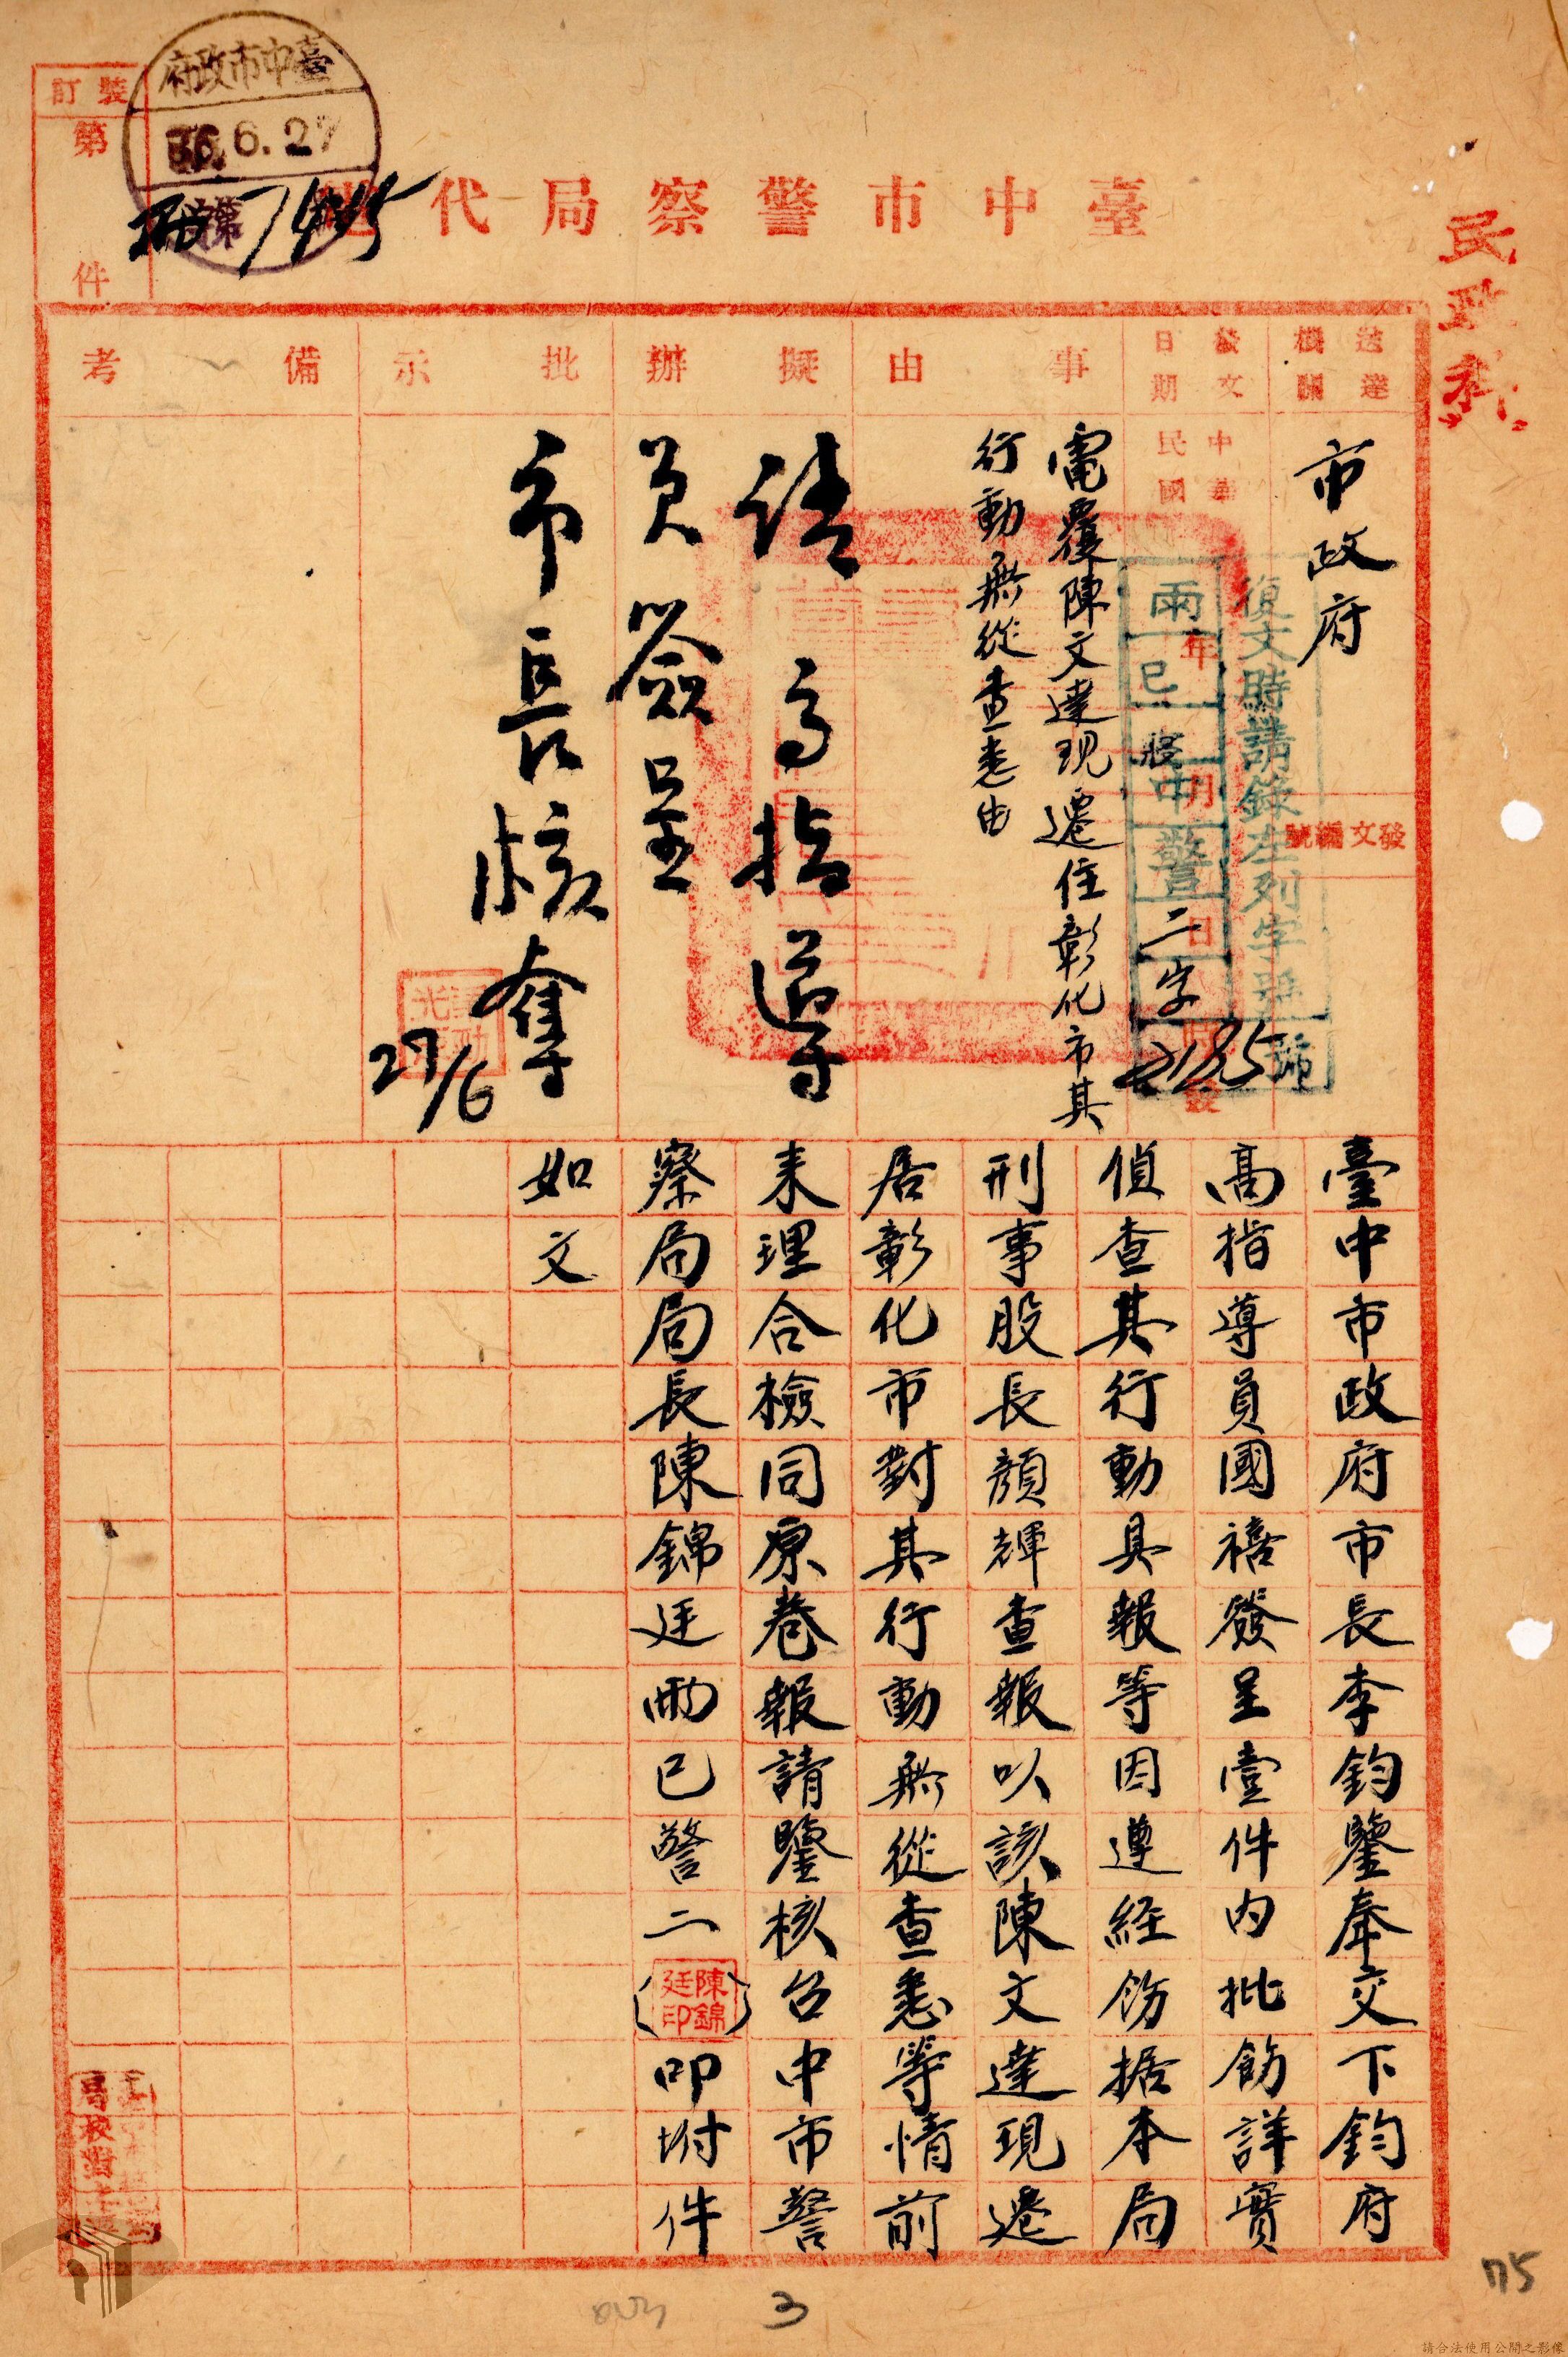 臺中市政府
36.6.27
裝訂
第
件
臺中市警察局代電
民政科
送達機關
市政府
發文日期
中華民國
年
月
日
發
發文編號
復文時請錄左列字號
兩巳 中警二字
2185號
事由
電覆陳文達現遷住彰化市其
行動無從查悉由
擬辦
請高指導
員簽呈
批示
市長核奪
27/6
備考
臺中市政府市長李鈞鑒奉交下鈞府
高指導員國禧簽呈壹件內批飭詳實
偵查其行動具報等因遵經飭据本局
刑事股長顏輝查報以該陳文達現遷
居彰化市對其行動無從查悉等情前
來理合檢同原卷報請鑒核台中市警
察局局長陳錦廷兩巳警二(陳錦廷印)叩附件
如文
3
175
請合法使用公開之影像